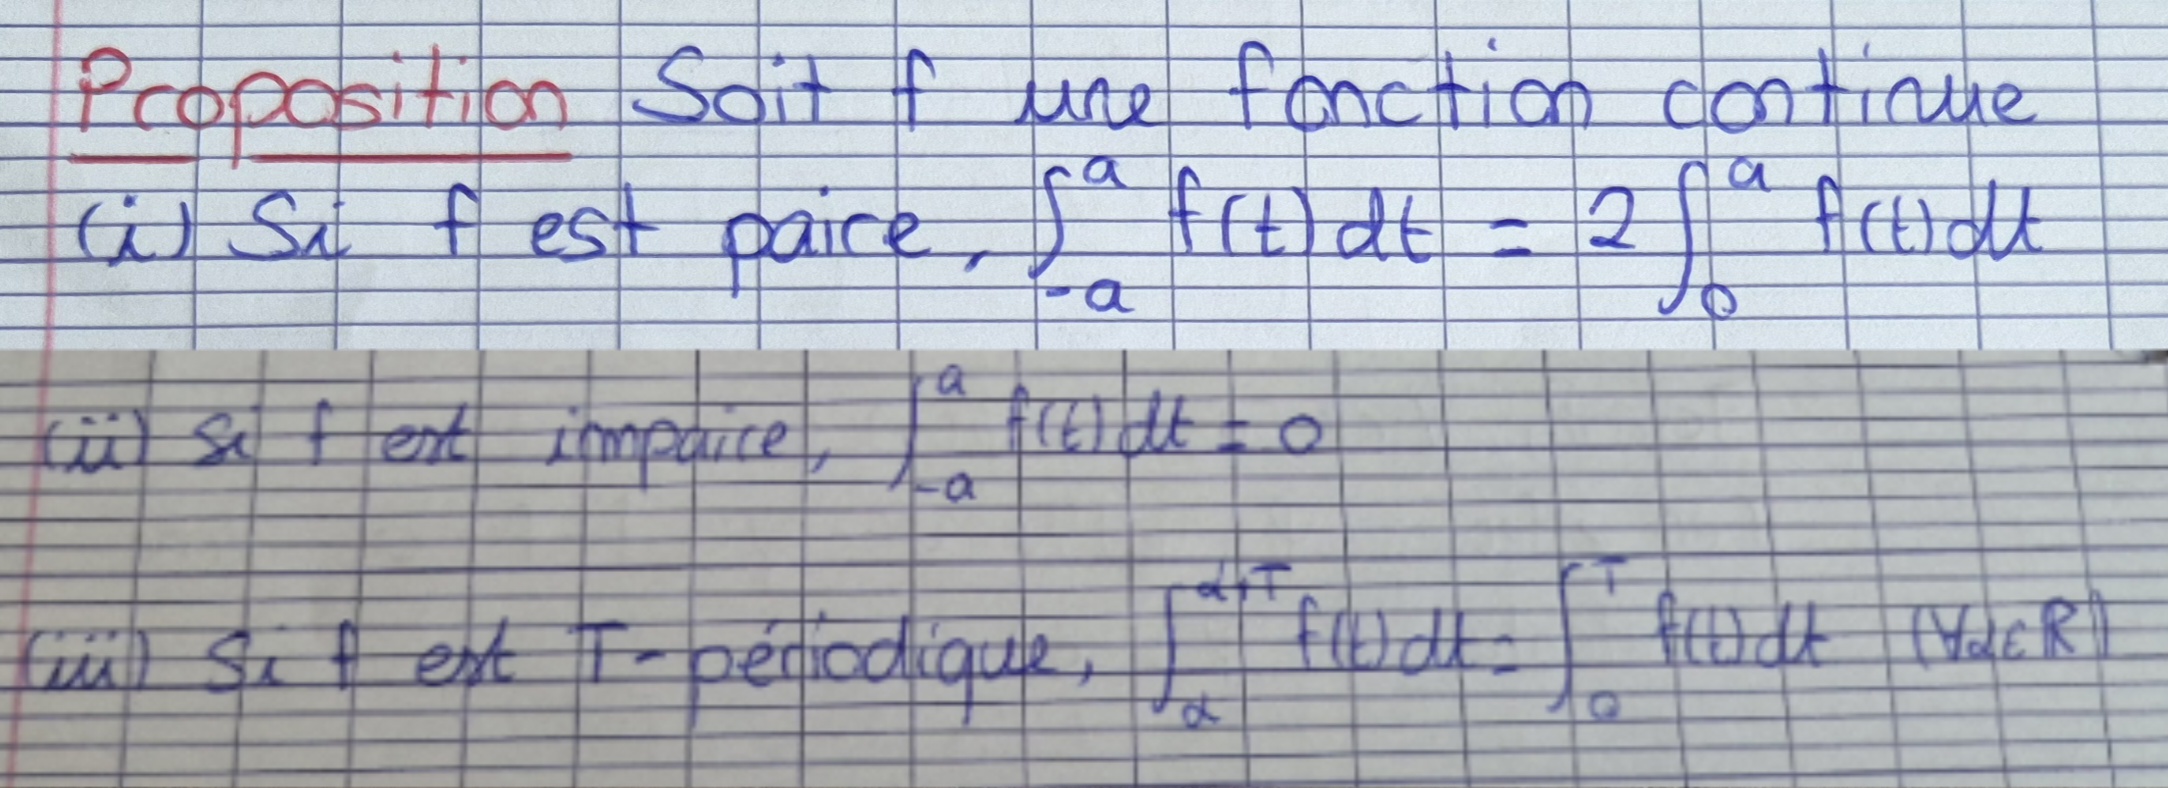 Proposition Soit f une fonction continue
(i) Si f est paire, ∫_{-a}^{a} f(t)dt = 2∫_{0}^{a} f(t)dt
(ii) Si f est impaire, ∫_{-a}^{a} f(t)dt = 0
(iii) Si f est T-périodique, ∫_{α}^{α+T} f(t)dt = ∫_{0}^{T} f(t)dt (∀α∈ℝ)